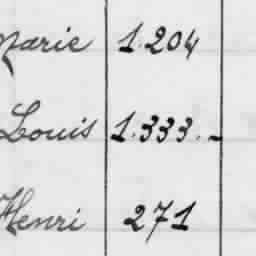 Marie 1.204
Louis 1.333.-
Henri 271